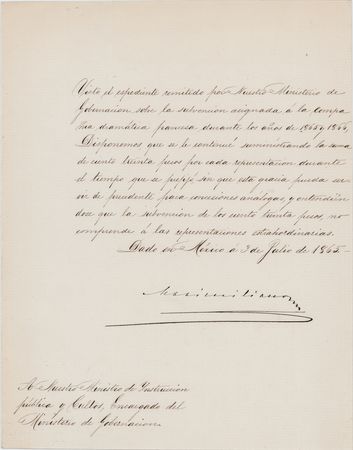 Visto el expediente remitido por Nuestro Ministerio de
Gobernacion sobre la subvencion asignada á la compa
ñia dramática francesa durante los años de 1865 y 1866,
Disponemos que se le continúe suministrando la suma
de ciento treinta pesos por cada representacion durante
el tiempo que se sin que esta gracia pueda ser
vir de precedente para concesiones análogas, y entendién
dose que la subvencion de los ciento treinta pesos, no
comprende á las representaciones extraordinarias.
Dado en México á 3 de Julio de 1865-
Maximiliano
A Nuestro Ministro de Instruccion
pública y Cultos, Encargado del
Ministerio de Gobernacion.